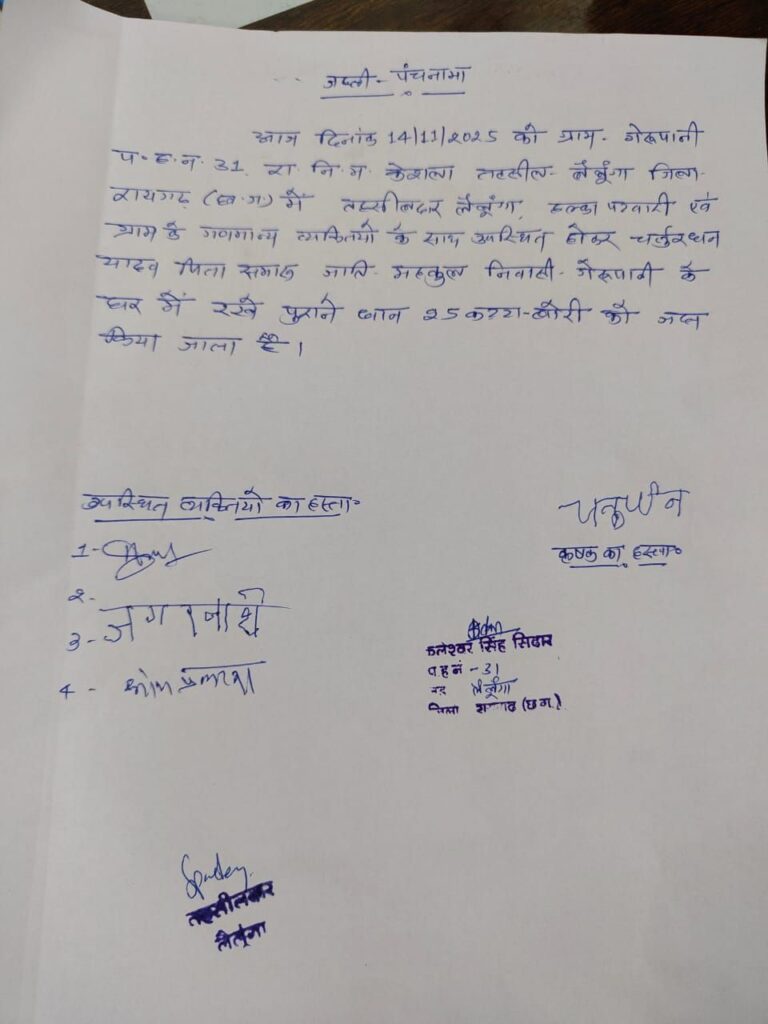 जप्ती - पंचनामा
आज दिनांक 14/11/2025 को ग्राम - गेरूपानी
प.ह.न. 31. रा.नि.म. केशला तहसील - लैलूंगा जिला-
रायगढ़ (छ.ग.) में तहसीलदार लैलूंगा, हल्का पटवारी एवं
ग्राम के गणमान्य व्यक्तियों के साथ उपस्थित होकर
यादव पिता जाति - महकुल निवासी - गेरूपानी के
घर में रखे पुराने धान 25 कट्टा - बोरी को जप्त
किया जाता है।
उपस्थित व्यक्तियों का हस्ता॰
1-
2-
3-
4 - ओम प्रकाश
कृषक का हस्ता॰
सिंह सिदार
प ह नं - 31
लैलूंगा
जिला (छ.ग.)
तहसीलदार
लैलूंगा